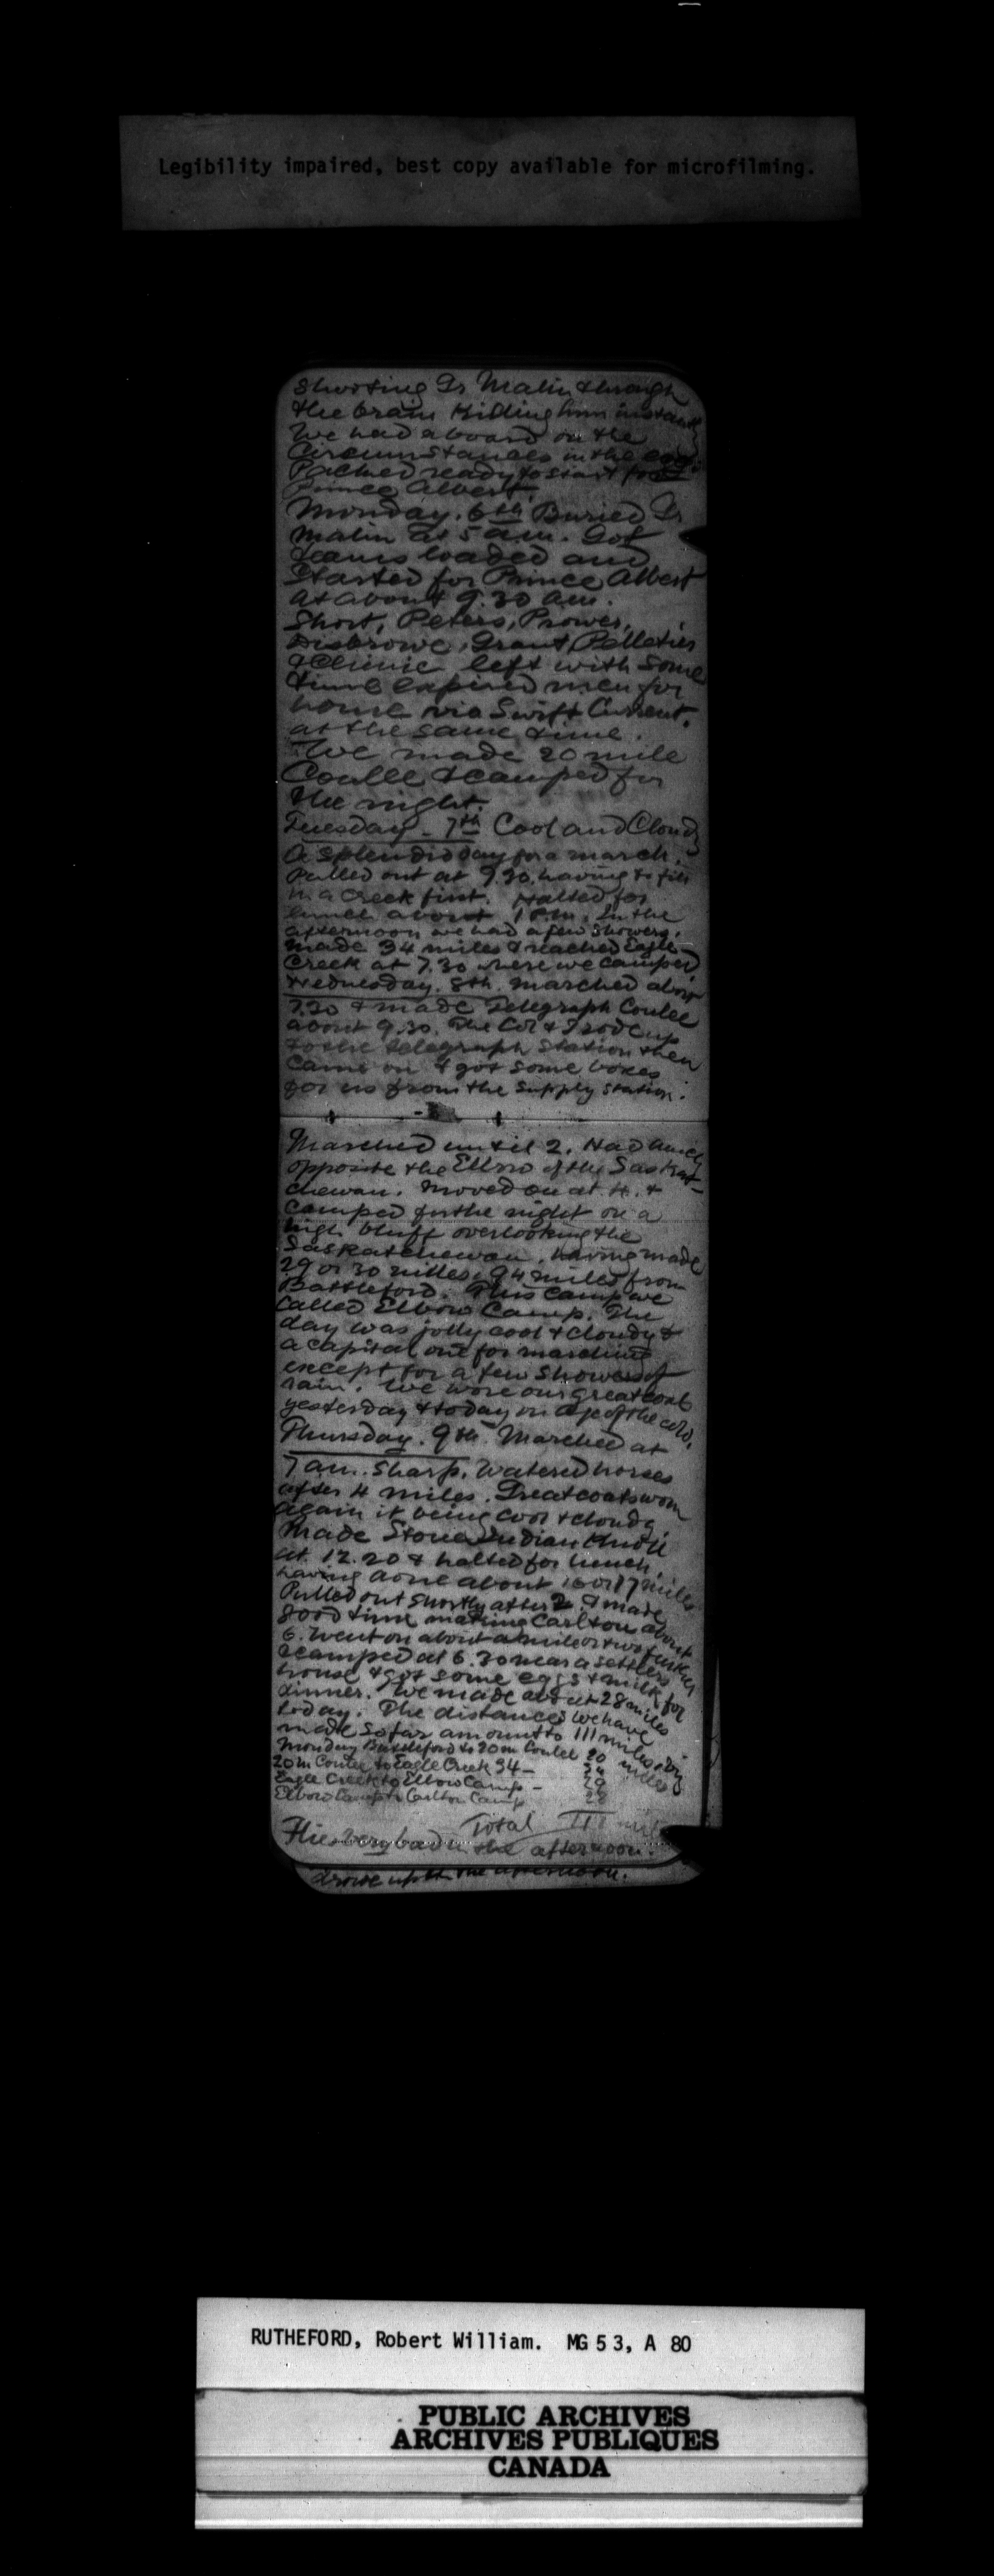 Legibility impaired, best copy available for microfilming.
Shooting Gr Malin through
the brain killing him instantly
We had a board on the
Circumstances in the eve
Packed ready to start for
Prince Albert.
Monday. 6th Buried Gr
Malin at 5 a.m. Got
teams loaded and
Started for Prince Albert
at about 9.30 am.
Short, Peters, Prower,
Disbrowe, Grant, Pelletier
& Climie left with some
time expired men for
home via Swift Current.
at the same time.
We made 20 mile
Coulee & camped for
the night.
Tuesday - 7th Cool and Cloudy
A splendid day for a march.
Pulled out at 7.30 having to fill
in a creek first. Halted for
lunch about 1 P.M. In the
afternoon we had a few showers.
made 34 miles & reached Eagle
Creek at 7.30 where we camped.
Wednesday. 8th. marched about
7.30 & made Telegraph Coulee
about 9.30. The Col & I rode up
to the telegraph station then
came on & got some boxes
for us from the supply station.
Marched until 2. Had lunch
opposite the Elbow of the Saskat-
chewan. Moved on at 4. &
camped for the night on a
high bluff overlooking the
Saskatchewan. having made
29 or 30 miles, 94 miles from
Battleford. This camp we
called Elbow Camp. The
day was jolly cool & cloudy &
a capital one for marching
except for a few showers of
rain. We wore our great coats
yesterday & today on a/c of the cold.
Thursday. 9th. Marched at
7 am. sharp. Watered horses
after 4 miles. Greatcoats worn
again it being cool & cloudy.
Made Stone Indian Knoll
at 12.20 & halted for lunch.
having done about 16 or 17 miles
Pulled out shortly after 2 & made
good time making Carlton about
6. Went on about a mile or two further
& camped at 6.30 near a settlers
house & got some eggs & milk for
dinner. We made about 28 miles
today. The distances we have
made so far amount to 111 miles.
Monday Battleford to 20 m Coulee 20 miles
20 m Coulee to Eagle Creek 34 - 34
Eagle Creek to Elbow Camp - 29
Elbow Camp to Carlton Camp 28
Total 111 miles
Flies very bad in the afternoon.
drove up in the afternoon.
RUTHEFORD, Robert William. MG 53, A 80
PUBLIC ARCHIVES
ARCHIVES PUBLIQUES
CANADA